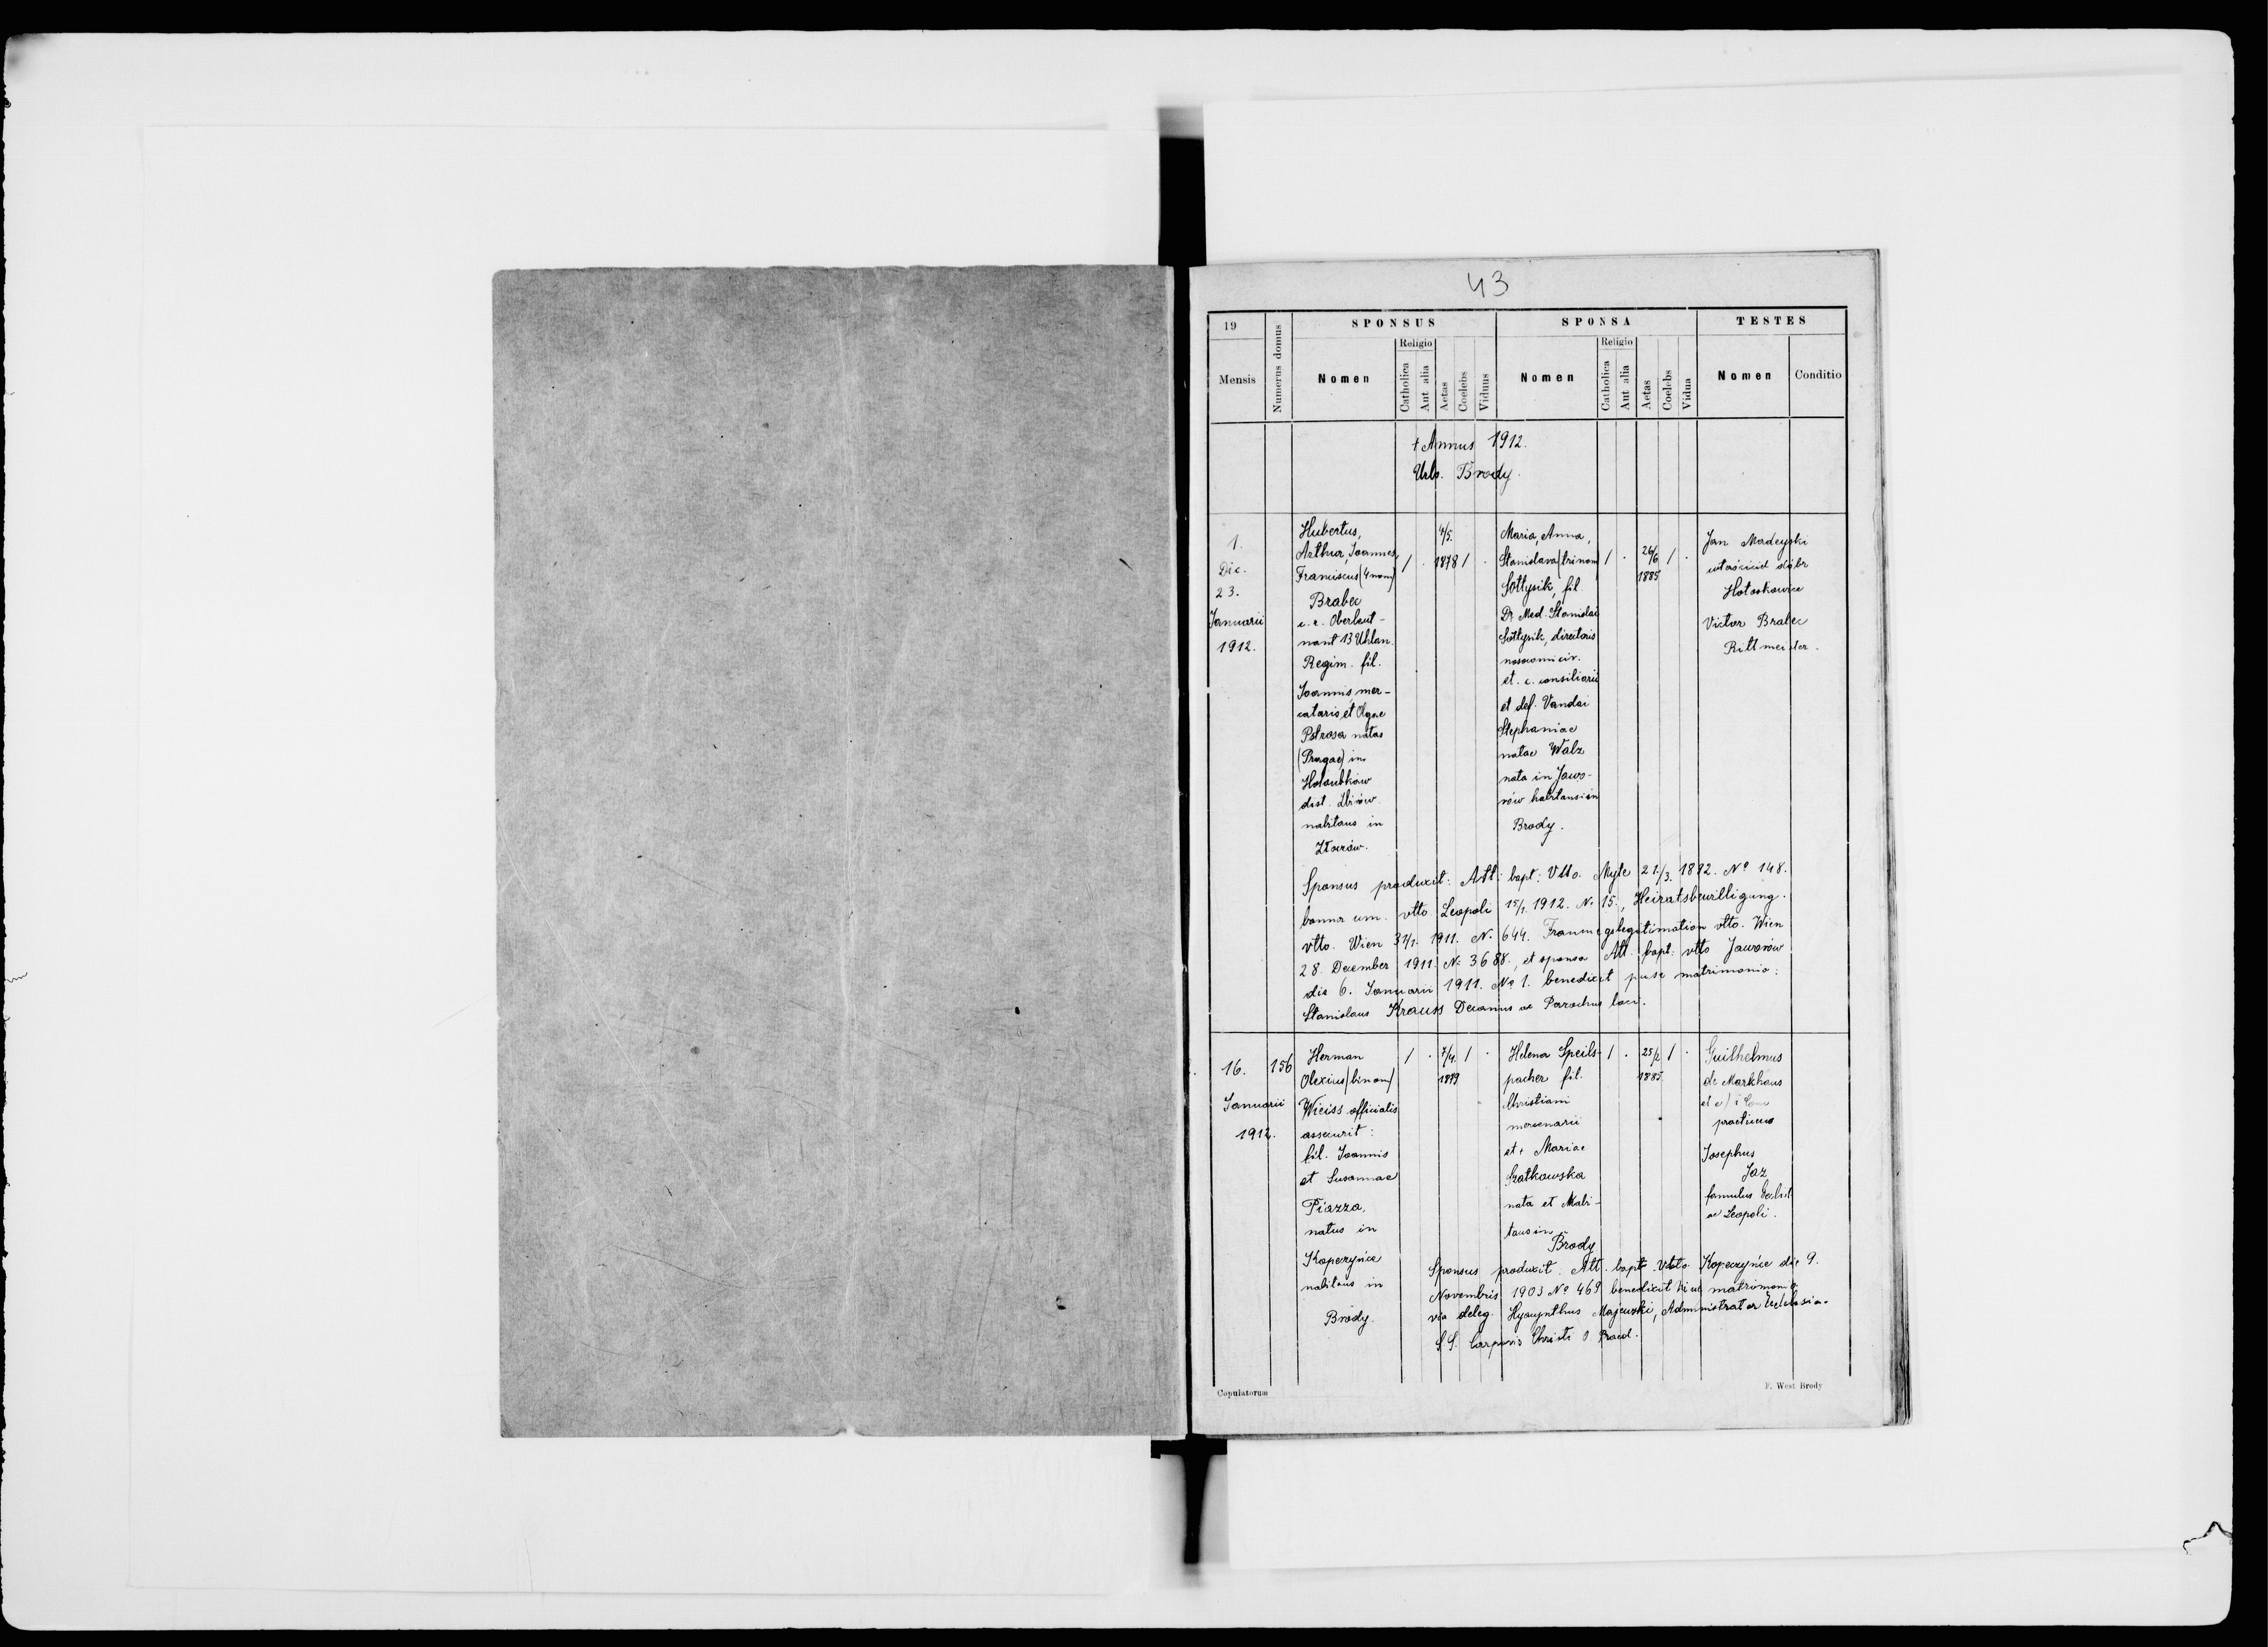 43
19
Mensis
Numerus domus
SPONSUS
Nomen
Religio
Catholica
Aut alia
Aetas
Coelebs
Viduus
SPONSA
Nomen
Religio
Catholica
Aut alia
Aetas
Coelebs
Vidua
TESTES
Nomen
Conditio
Annus 1912.
Urb. Brody.
1.
Die.
23.
Januarii
1912.
Hubertus,
Arthur, Joannes,
Franciscus (4 nom)
Brabec
c. r. Oberleut-
nant 13 Uhlan.
Regim. fil.
Joannis mer-
catoris et Olgae
Pstrosa natae
(Pragae) in
Holoubkow
dist. Zbirow
habitans in
Złoczów.
/ . 4/5. 1878 / .
Maria, Anna,
Stanislava (trinom)
Sołtysik, fil.
Dr. Med. Stanislai
Sołtysik, directoris
nosocomii civ.
et. c. consiliarii
et def. Vandai
Stephaniae
natae Walz
nata in Jawo-
rów habitans in
Brody.
/ . 26/6 1885 / .
Jan Madeyski
właściciel dóbr
Hołoskowice
Victor Brabec
Rittmeister.
Sponsus produxit: Att. bapt: Vtto. Myte 21./3. 1892. No 148.
vtto Leopoli 15/1. 1912. No 15., Heiratsbewilligung.
vtto. Wien 1911. No 644. vtto. Wien
28. December 1911. No 3688., et sponsa Att. bapt: vtto Jaworów
die 6. Januarii 1911. No 1. benedixit matrimonio:
Stanislaus Krauss Decanus ac Parochus loci.
16.
Januarii
1912.
156
Herman
Olexius (binom)
Weiss officialis
assecurit:
fil. Joannis
et Susannae
Piazza,
natus in
Kopeczyńce
habitans in
Brody.
/ . 7/4. 1879 / .
Helena Speils-
pacher fil.
Christiani
mercenarii
et Mariae
Szatkowska
nata et habi-
tans in
Brody
/ . 25/2 1885. / .
Guilhelmus
de Markhaus
practicus
Josephus
Jaz
famulus
Leopoli.
Sponsus produxit: Att. bapt. Vtto. Kopeczyńce die 9.
Novembris 1903 No 469 benedixit huic matrimonio
via deleg. Hyacynthus Majewski, Administrator Ecclesiae
S.S. Corporis Christi O Praed.
Copulatorum
F. West Brody